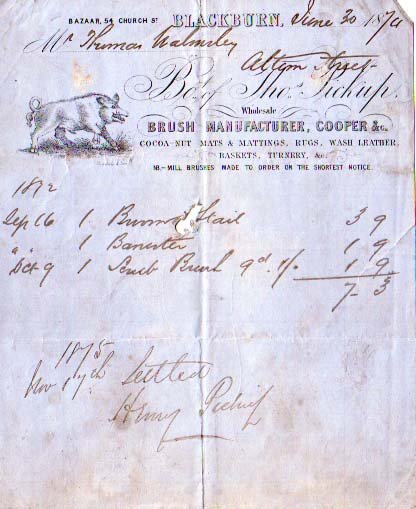 BAZAAR, 54 CHURCH ST BLACKBURN, June 30 187
Mr Thomas Walmsley
Bot. of Thos. Pickup,
Wholesale
BRUSH MANUFACTURER, COOPER &c.
COCOA-NUT MATS & MATTINGS, RUGS, WASH LEATHER,
BASKETS, TURNERY, &c.
NB.-MILL BRUSHES MADE TO ORDER ON THE SHORTEST NOTICE.
1872
Sep 16 1 Broom & Stail 3 9
" " 1 Banister 1 9
Oct 9 1 Scrub Brush 9d 1/- 1 9
7- 3
1875
Nov 17th Settled
Henry Pickup